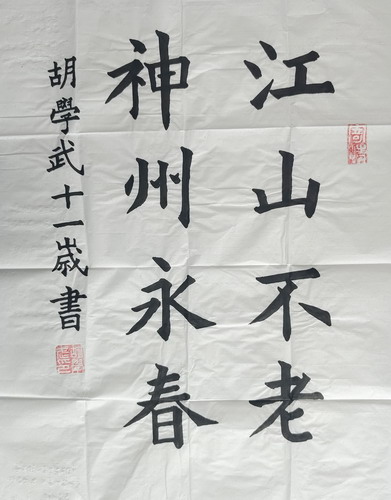 江山不老
神州永春
胡學武十一歲書